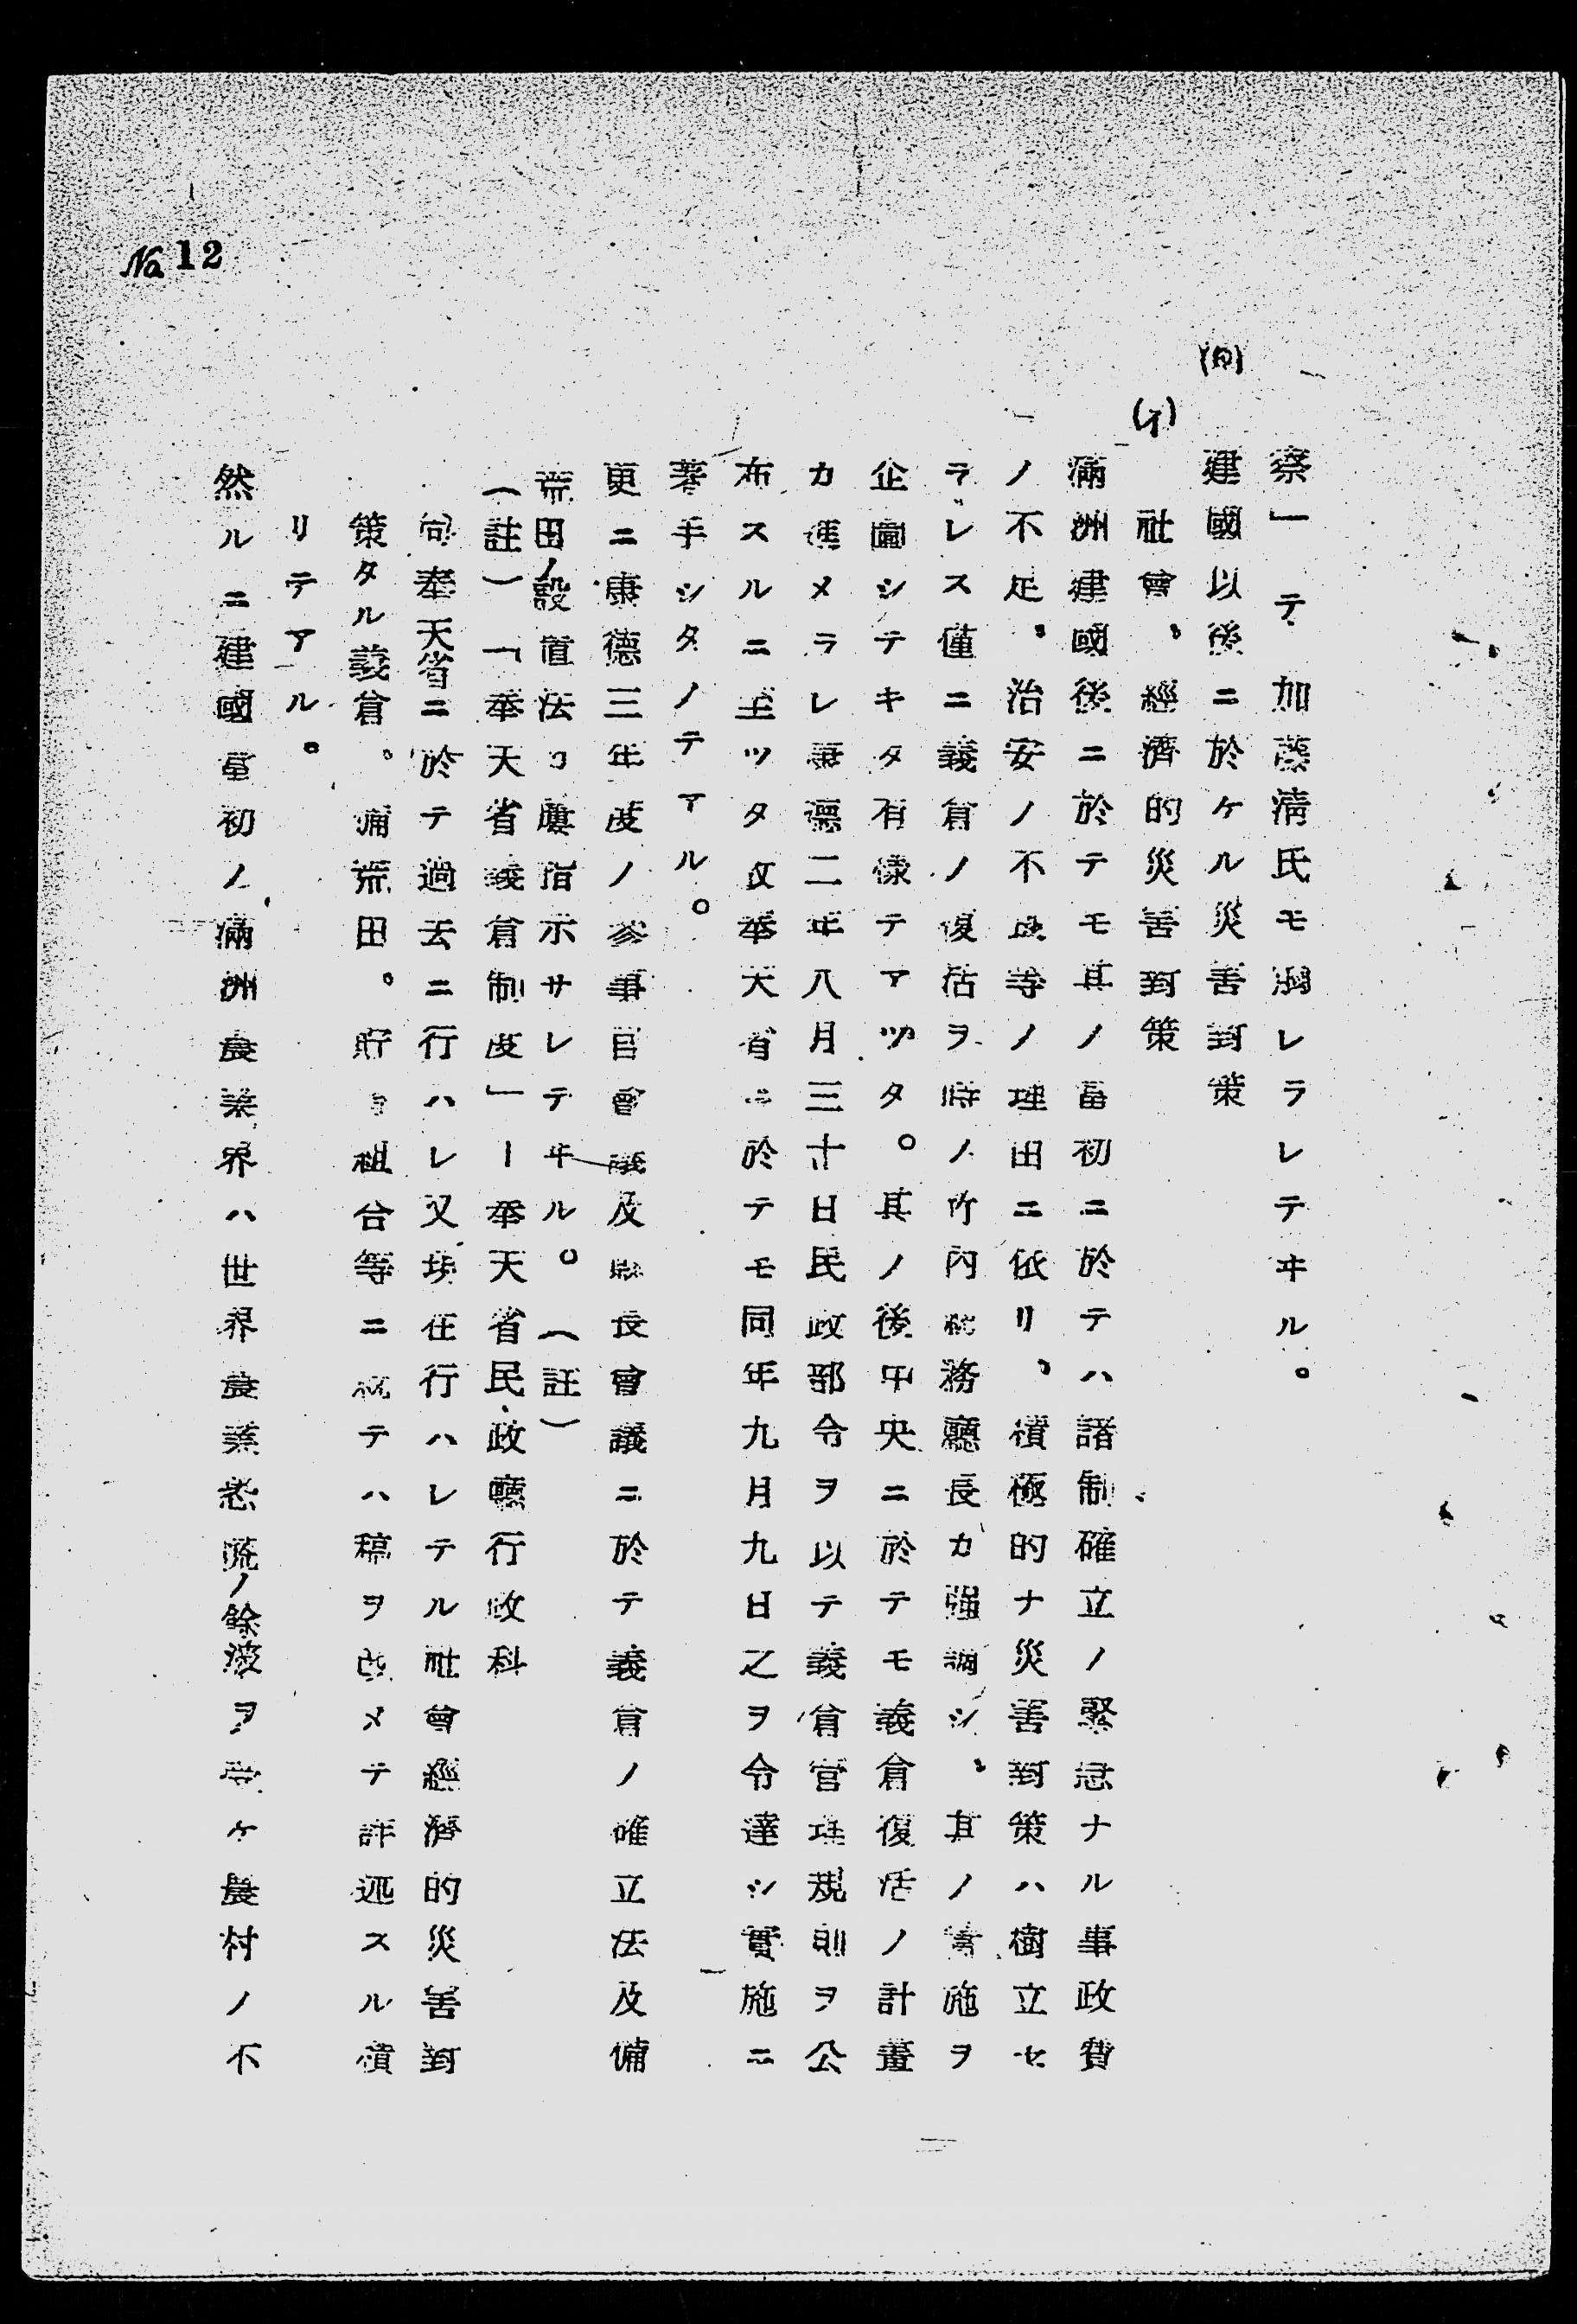 No 12
察」テ加藤淸氏モ觸レラレテヰル。
(四) 建國以後ニ於ケル災害對策
(イ) 社會、經濟的災害對策
滿洲建國後ニ於テモ其ノ當初ニ於テハ諸制確立ノ緊急ナル事政費
ノ不足、治安ノ不良等ノ理由ニ依リ、積極的ナ災害對策ハ樹立セ
ラレス僅ニ義倉ノ復活ヲ時ノ 內務廳長カ强調シ、其ノ實施ヲ
企圖シテキタ有樣テアツタ。其ノ後中央ニ於テモ義倉復活ノ計畫
カ進メラレ康德二年八月三十日民政部令ヲ以テ義倉官理規則ヲ公
布スルニ至ツタ故奉天省ニ於テモ同年九月九日之ヲ令達シ實施ニ
著手シタノテアル。
更ニ康德三年度ノ參事官會議及縣長會議ニ於テ義倉ノ確立法及備
荒田ノ設置法カ屢指示サレテヰル。(註)
(註)「奉天省義倉制度」ー奉天省民政廳行政科
尙奉天省ニ於テ過去ニ行ハレ又現在行ハレテル社會經濟的災害對
策タル義倉。備荒田。貯 組合等ニ就テハ稿ヲ改メテ詳述スル積
リテアル。
然ルニ建國當初ノ滿洲農業界ハ世界農業恐慌ノ餘波ヲ受ケ農村ノ不